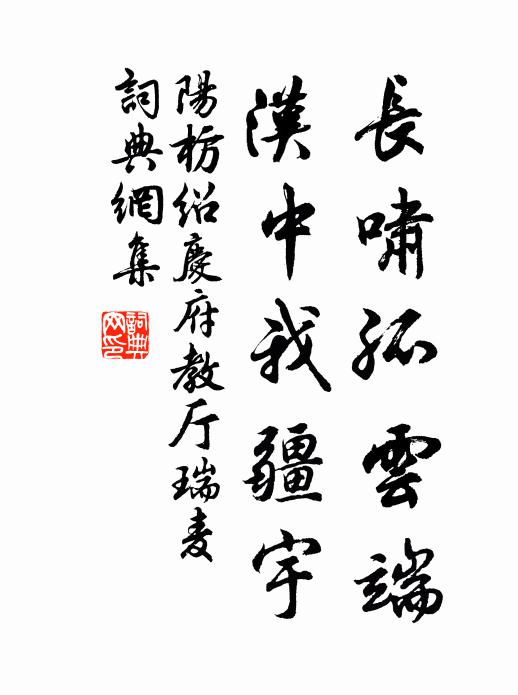 長嘯孤雲端
漢中我疆宇
陽枋紹慶府教厅瑞麦
詞典網集
詞典网印